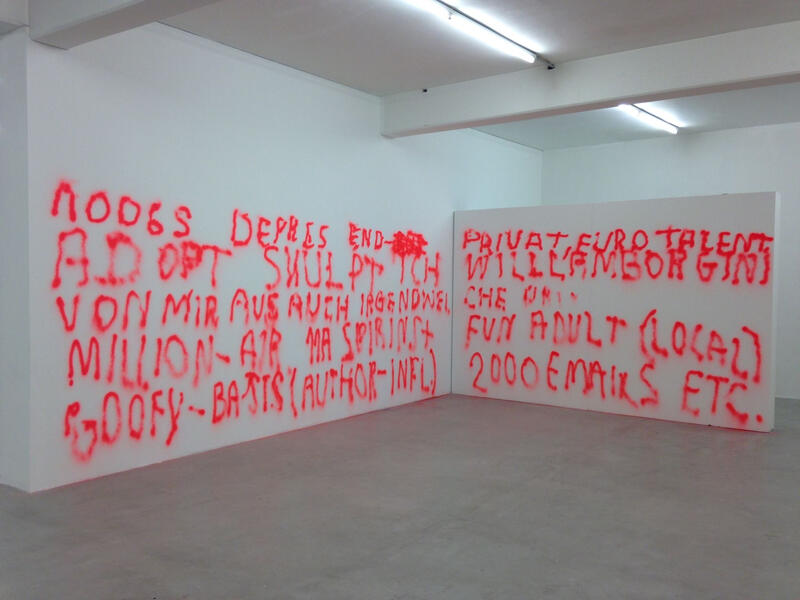 DEPRIS END-
ADOPT SKULPT ICH
VON MIR AUS AUCH IRGENDWEL
MILLION-AIR MA SPIRINST
GOOFY-BASIS (AUTHOR-INFL.)
PRIVAT. EURO TALENT
WILL L'AMBORGINI
CHE UNI..
FUN ADULT (LOCAL)
2000 EMAILS ETC.